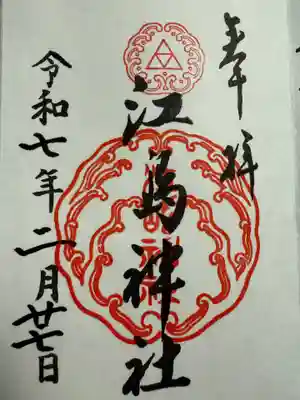 奉拝
江島神社
令和七年二月廿七日